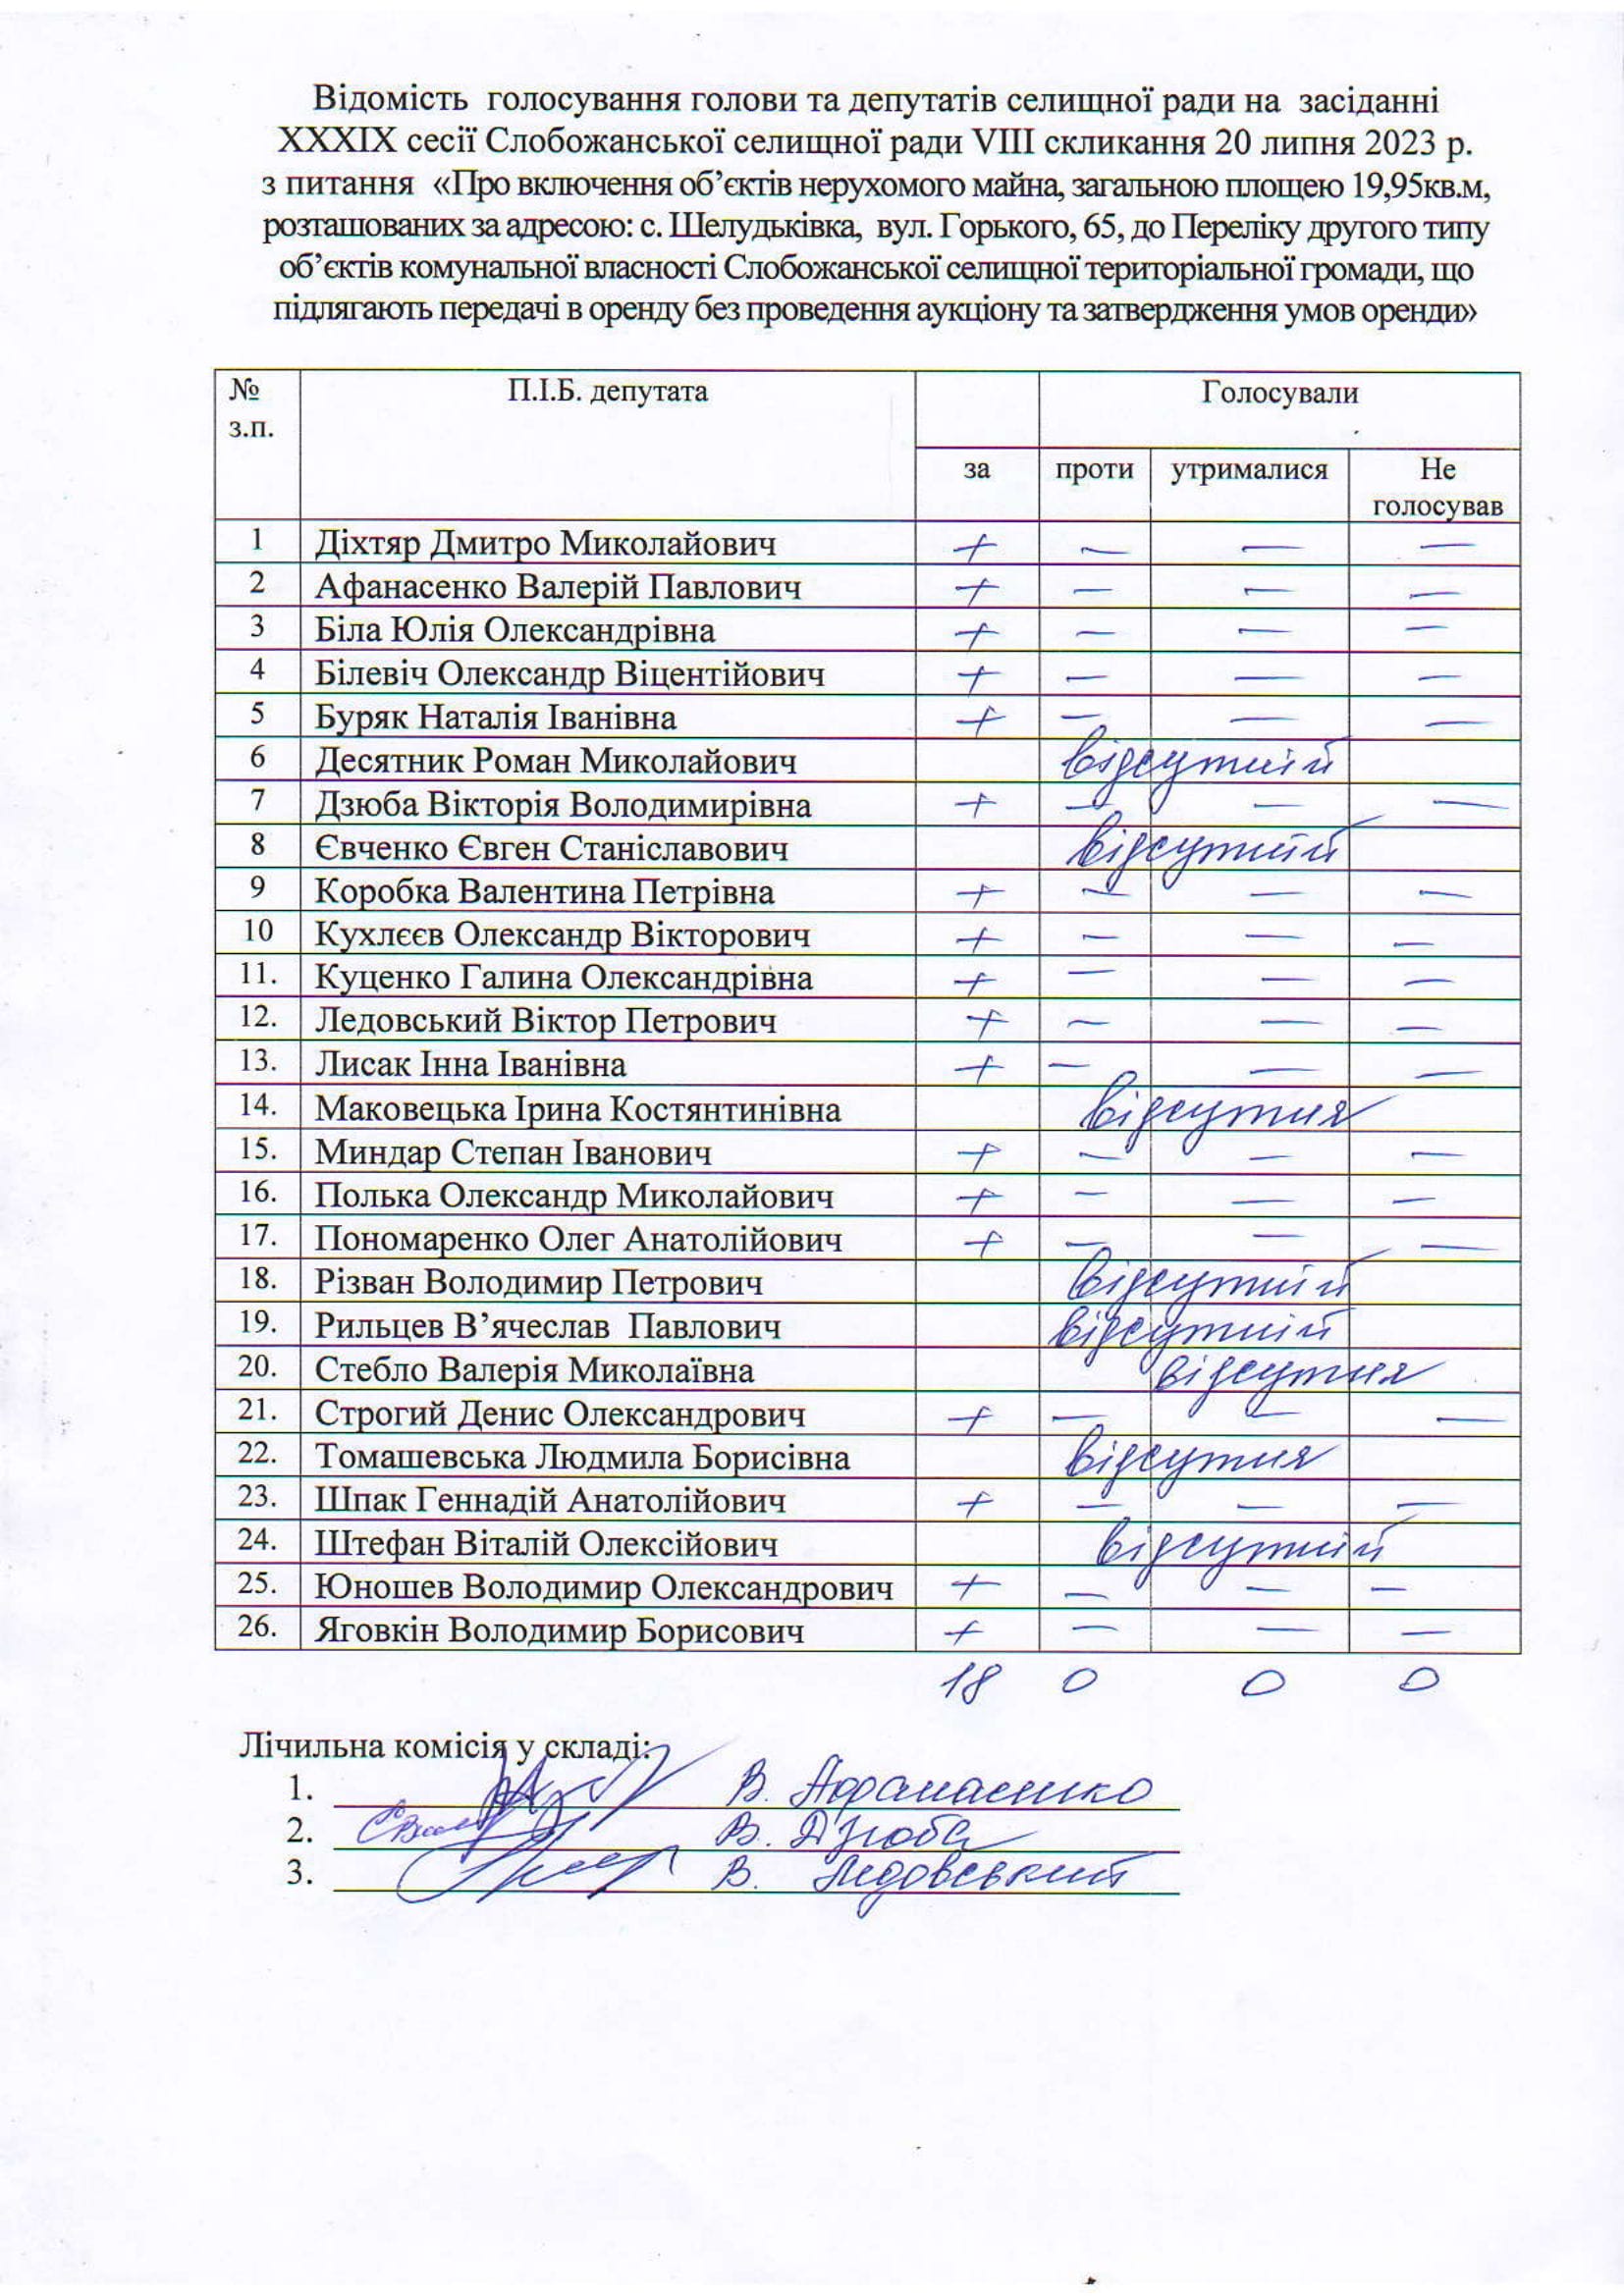 Відомість голосування голови та депутатів селищної ради на засіданні
XXXIX сесії Слобожанської селищної ради VIII скликання 20 липня 2023 р.
з питання «Про включення об’єктів нерухомого майна, загальною площею 19,95кв.м,
розташованих за адресою: с. Шелудьківка, вул. Горького, 65, до Переліку другого типу
об’єктів комунальної власності Слобожанської селищної територіальної громади, що
підлягають передачі в оренду без проведення аукціону та затвердження умов оренди»
№ П.І.Б. депутата Голосували
з.п.
за проти утрималися Не
голосував
1 Діхтяр Дмитро Миколайович + — — —
2 Афанасенко Валерій Павлович + — — —
3 Біла Юлія Олександрівна + — — —
4 Білевіч Олександр Віцентійович + — — —
5 Буряк Наталія Іванівна + — — —
6 Десятник Роман Миколайович відсутній
7 Дзюба Вікторія Володимирівна + — — —
8 Євченко Євген Станіславович відсутній
9 Коробка Валентина Петрівна + — — —
10 Кухлєєв Олександр Вікторович + — — —
11. Куценко Галина Олександрівна + — — —
12. Ледовський Віктор Петрович + — — —
13. Лисак Інна Іванівна + — — —
14. Маковецька Ірина Костянтинівна відсутня
15. Миндар Степан Іванович + — — —
16. Полька Олександр Миколайович + — — —
17. Пономаренко Олег Анатолійович + — — —
18. Різван Володимир Петрович відсутній
19. Рильцев В’ячеслав Павлович відсутній
20. Стебло Валерія Миколаївна відсутня
21. Строгий Денис Олександрович + — — —
22. Томашевська Людмила Борисівна відсутня
23. Шпак Геннадій Анатолійович + — — —
24. Штефан Віталій Олексійович відсутній
25. Юношев Володимир Олександрович + — — —
26. Яговкін Володимир Борисович + — — —
18 0 0 0
Лічильна комісія у складі:
1. В. Афанасенко
2. В. Дзюба
3. В. Ледовський